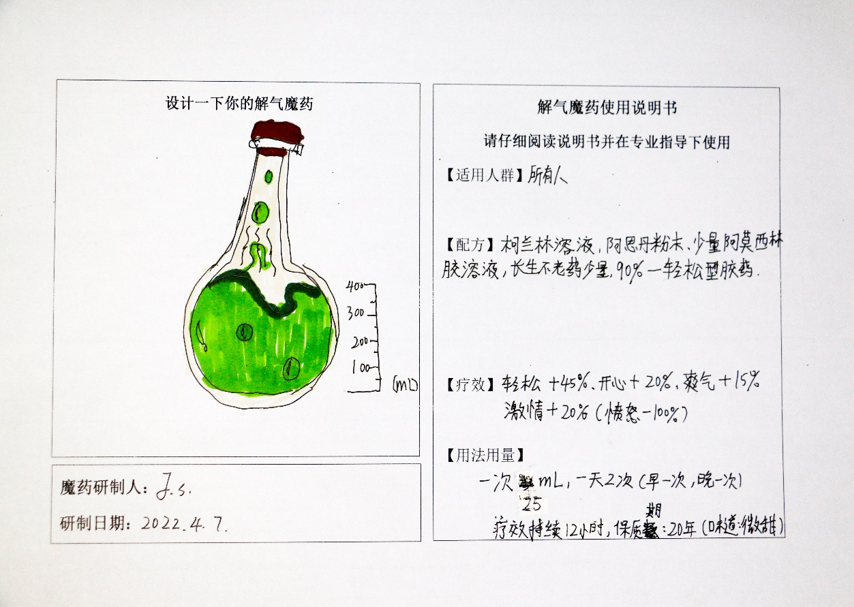 设计一下你的解气魔药
400
300
200
100
(mL)
魔药研制人：J.S.
研制日期：2022.4.7.
解气魔药使用说明书
请仔细阅读说明书并在专业指导下使用
【适用人群】所有人
【配方】柯兰林溶液，阿恩丹粉末、少量阿莫西林
胶溶液，长生不老药少量，90%一轻松型胶药.
【疗效】轻松+45%、开心+20%、爽气+15%
激情+20%(愤怒-100%)
【用法用量】
一次25mL，一天2次(早一次,晚一次)
疗效持续12小时，保质期:20年(味道:微甜)